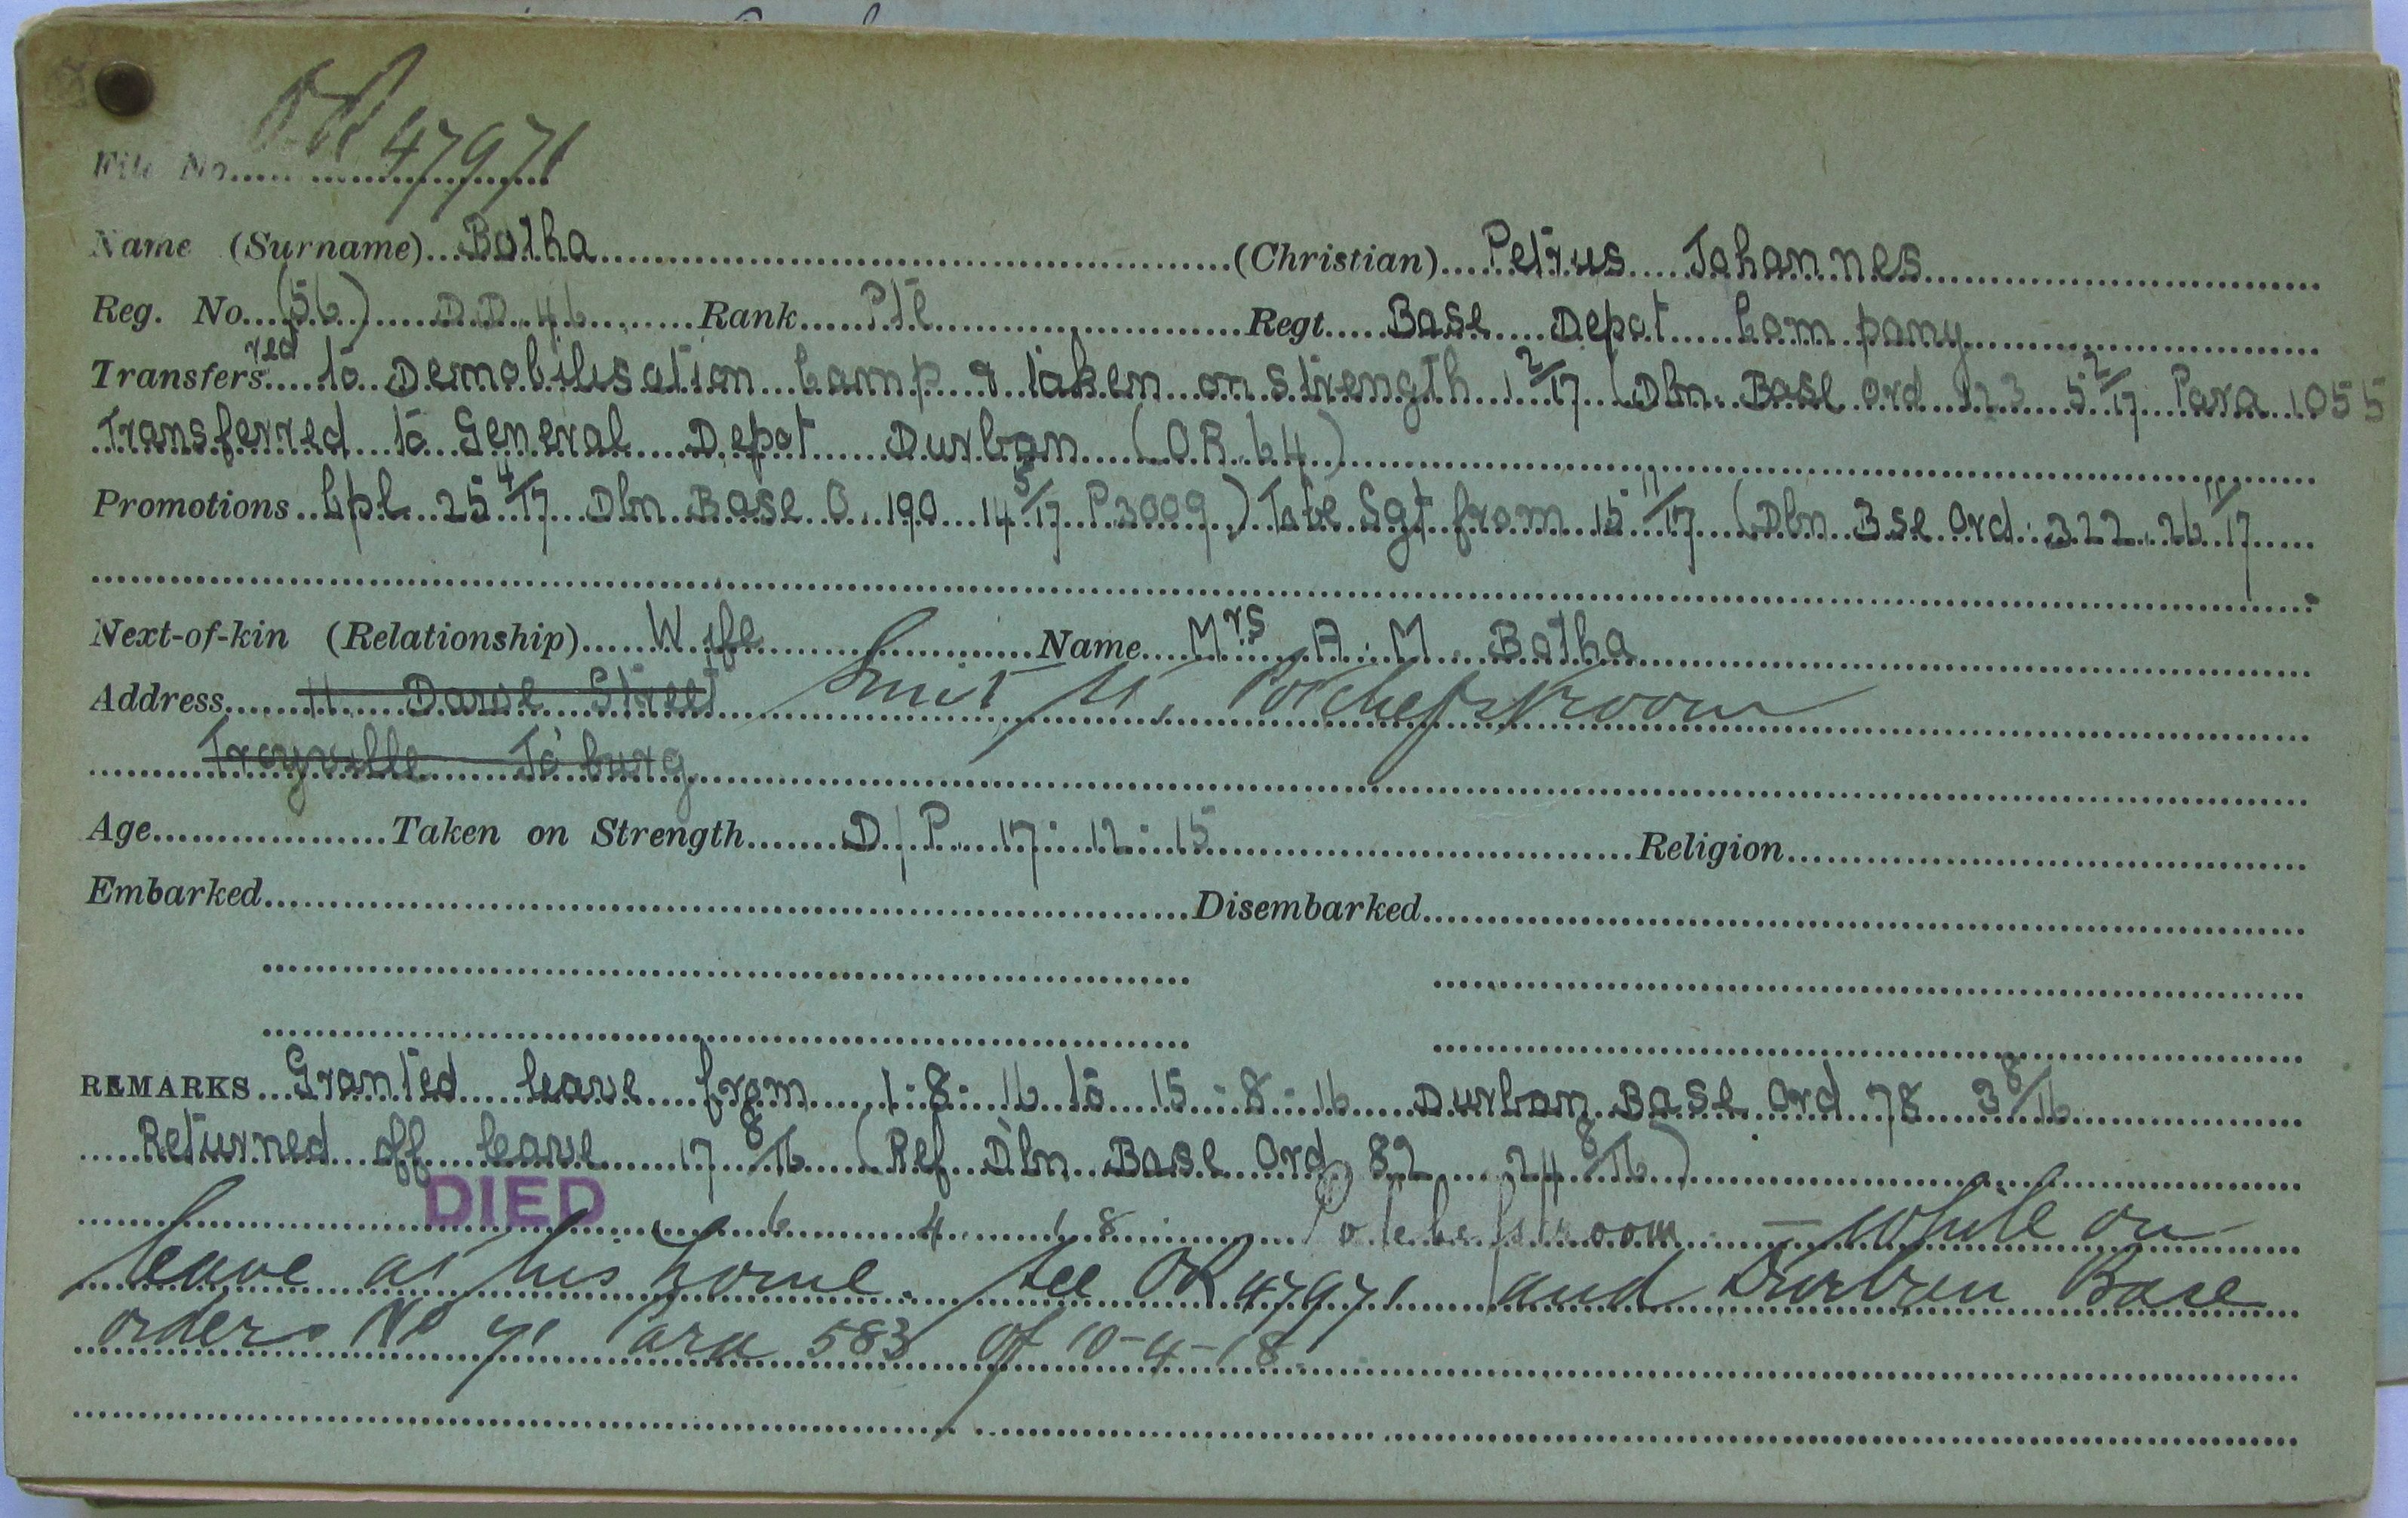 File No..... OR 47971
Name (Surname)...Botha...(Christian)....Petrus Johannes
Reg. No...(56) D.D. 46...Rank...Pte...Regt...Base Depot Company
Transfersred to Demobilisation Camp & taken on strength 1 2/17 (Dbn. Base Ord 123 5 2/17 Para 1055
Transferred to General Depot Durban (O.R. 64)
Promotions Cpl 25 4/17 Dbn Base O 190 14 5/17 P3009) To be Sgt from 15 11/17 (Dbn Bse Ord: 322 26 11/17
Next-of-kin (Relationship)...Wife...Name...Mrs A. M. Botha
Address... 11 Darve Street Smit St, Potchefstroom
Troyville Jo'burg
Age...Taken on Strength...D/P. 17:12:15...Religion
Embarked...Disembarked
REMARKS Granted leave from 1:8:16 to 15:8:16 Durban Base Ord 78 3 8/16
Returned off leave 17 8/16 (Ref Dbn Base Ord 82 24 8/16)
DIED 6 4 18 Potchefstroom - while on
leave at his home. See OR 47971 and Durban Base
orders No 71 Para 583 of 10-4-18.